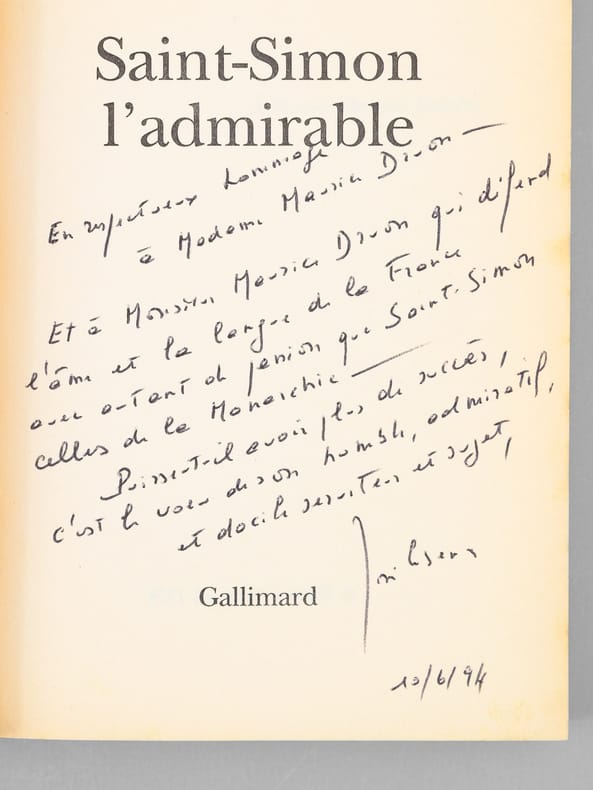 Saint-Simon
l'admirable
En respectueux hommage
à Madame Maurice Druon —
Et à Monsieur Maurice Druon qui défend
l'âme et la langue de la France
avec autant de passion que Saint-Simon
celles de la Monarchie —
Puisse-t-il avoir plus de succès,
c'est le voeu de son humble, admiratif,
et docile serviteur et sujet,
Gallimard
10/6/94